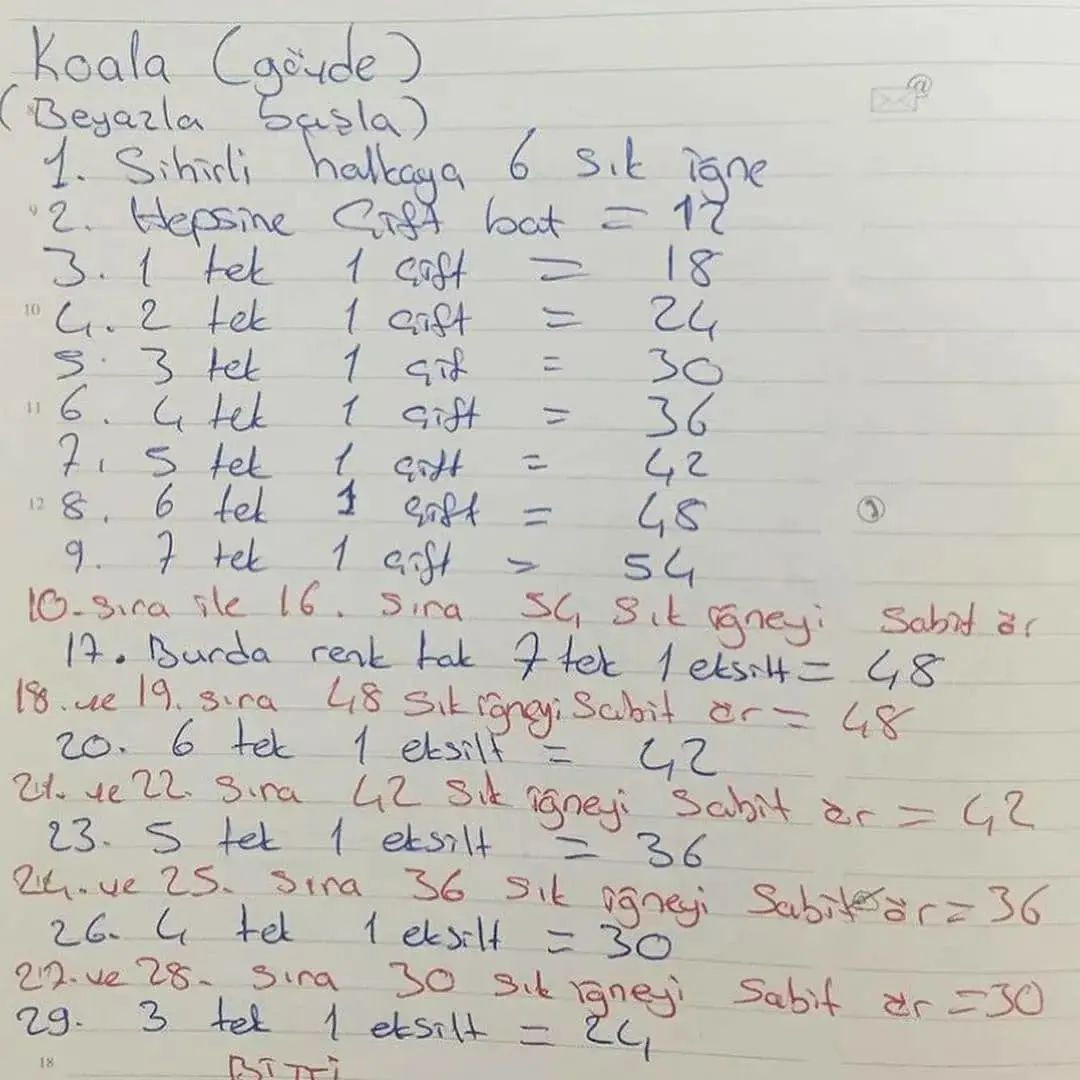 Koala (gövde)
(Beyazla başla)
1. Sihirli halkaya 6 sık iğne
2. Hepsine Çift bat = 12
3. 1 tek 1 çift = 18
10 4. 2 tek 1 çift = 24
5. 3 tek 1 çif = 30
11 6. 4 tek 1 çift = 36
7. 5 tek 1 çift = 42
12 8. 6 tek 1 çift = 48
9. 7 tek 1 çift = 54
10. sıra ile 16. sıra 54 sık iğneyi sabit ör
17. Burda renk tak 7 tek 1 eksilt = 48
18. ve 19. sıra 48 sık iğneyi sabit ör = 48
20. 6 tek 1 eksilt = 42
21. ve 22. sıra 42 sık iğneyi sabit ör = 42
23. 5 tek 1 eksilt = 36
24. ve 25. sıra 36 sık iğneyi sabit ör = 36
26. 4 tek 1 eksilt = 30
27. ve 28. sıra 30 sık iğneyi sabit ör = 30
29. 3 tek 1 eksilt = 24
18 BİTTİ